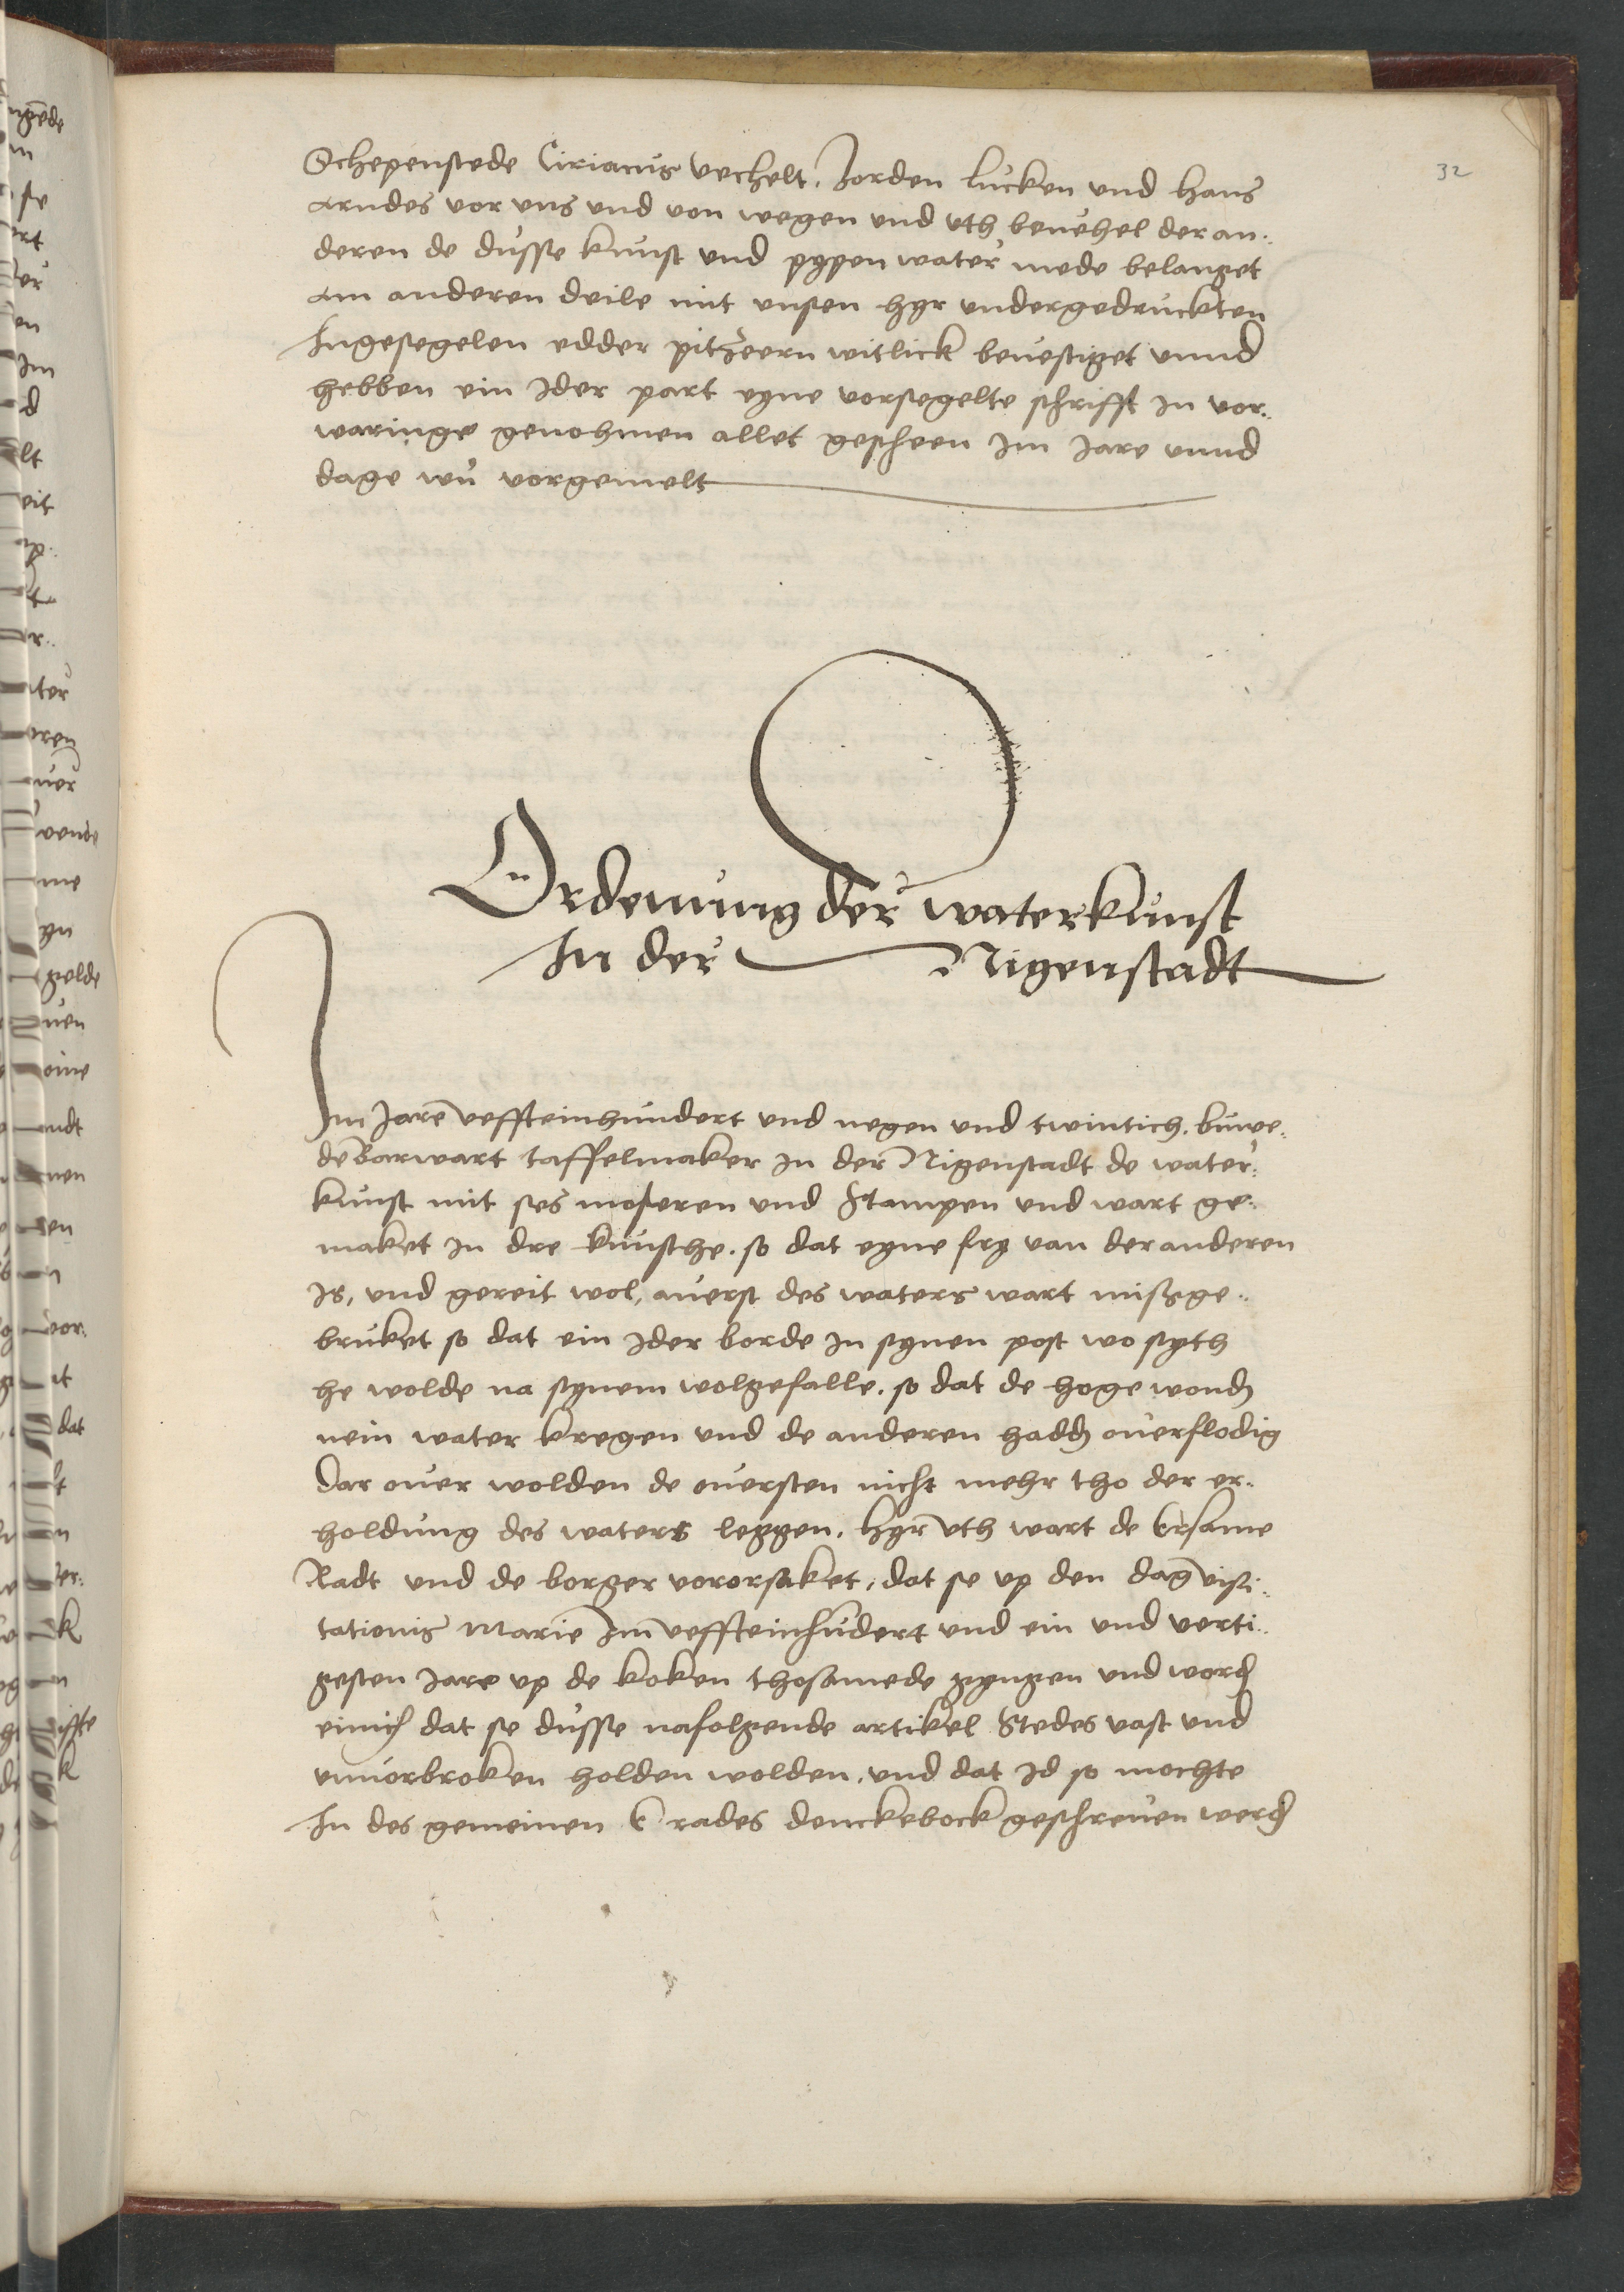 32
Schepenstede Cirianus vechelt. Jorden lucken und hans
arndes vor uns und von wegen und uth beuehel der an..
deren de dusse kunst und pypen water mede belanget
am anderen deile mit unsen hyr undergedruckten
Ingesegelen edder pitzeern witlick beuestiget unnd
hebben ein Ider part eyne vorsegelte schrifft in vor..
waringe genohmen allet gescheen Im Jare unnd
dage wu vorgemelt
Ordenung der waterkunst
In der Nigenstadt
Im Jare veffteinhundert und negen und twintich. buwe..
de Barwart taffelmaker in der Nigenstadt de water..
kunst mit ses moseren und stampen und wart ge..
maket in dre kunsthe. so dat eyne fry van der anderen
is, und gereit wol, auerst des waters wart missge..
bruket so dat ein Ider borde in synen post wo syth
he wolde na synem wolgefalle. so dat de hoge wond
nein water kregen und de anderen hadd ouerflodig
Dar ouer wolden de ouersten nicht mehr tho der er..
holdung des waters leggen. hyr uth wart de Ersame
Radt und de borger vororsaket, dat se up den dag visi..
tationis Marie Im veffteinhundert und ein und verti..
gesten Jare up de koken thosamede gyngen und word
einich dat se dusse nafolgende artikel Stedes vast und
unuorbroken holden wolden. und dat Id so mochte
In des gemeinen E rades denckebock geschreuen werd